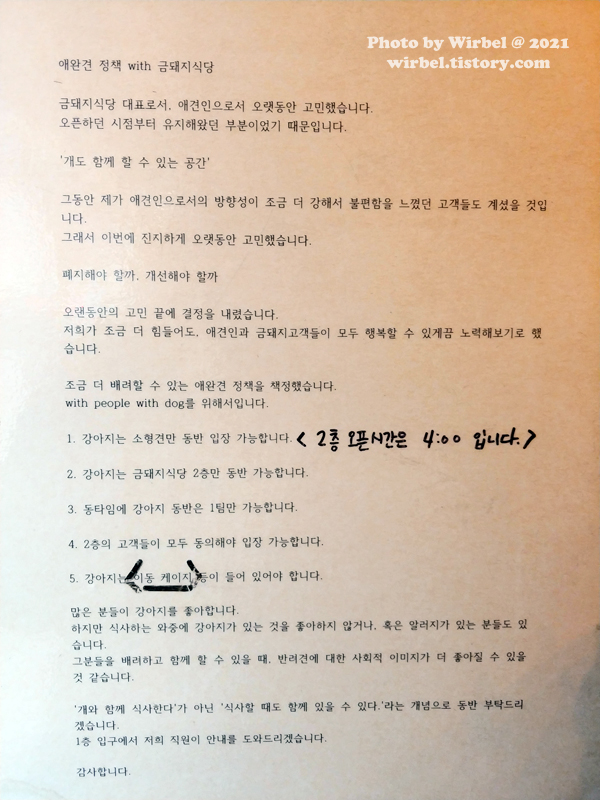 Photo by Wirbel @ 2021
wirbel.tistory.com
애완견 정책 with 금돼지식당
금돼지식당 대표로서, 애견인으로서 오랫동안 고민했습니다.
오픈하던 시점부터 유지해왔던 부분이었기 때문입니다.
'개도 함께 할 수 있는 공간'
그동안 제가 애견인으로서의 방향성이 조금 더 강해서 불편함을 느꼈던 고객들도 계셨을 것입
니다.
그래서 이번에 진지하게 오랫동안 고민했습니다.
폐지해야 할까, 개선해야 할까
오랜동안의 고민 끝에 결정을 내렸습니다.
저희가 조금 더 힘들어도, 애견인과 금돼지고객들이 모두 행복할 수 있게끔 노력해보기로 했
습니다.
조금 더 배려할 수 있는 애완견 정책을 책정했습니다.
with people with dog를 위해서입니다.
1. 강아지는 소형견만 동반 입장 가능합니다. < 2층 오픈시간은 4:00 입니다.>
2. 강아지는 금돼지식당 2층만 동반 가능합니다.
3. 동타임에 강아지 동반은 1팀만 가능합니다.
4. 2층의 고객들이 모두 동의해야 입장 가능합니다.
5. 강아지는 <이동 케이지> 등이 들어 있어야 합니다.
많은 분들이 강아지를 좋아합니다.
하지만 식사하는 와중에 강아지가 있는 것을 좋아하지 않거나, 혹은 알러지가 있는 분들도 있
습니다.
그분들을 배려하고 함께 할 수 있을 때, 반려견에 대한 사회적 이미지가 더 좋아질 수 있을
것 같습니다.
'개와 함께 식사한다'가 아닌 '식사할 때도 함께 있을 수 있다.'라는 개념으로 동반 부탁드리
겠습니다.
1층 입구에서 저희 직원이 안내를 도와드리겠습니다.
감사합니다.